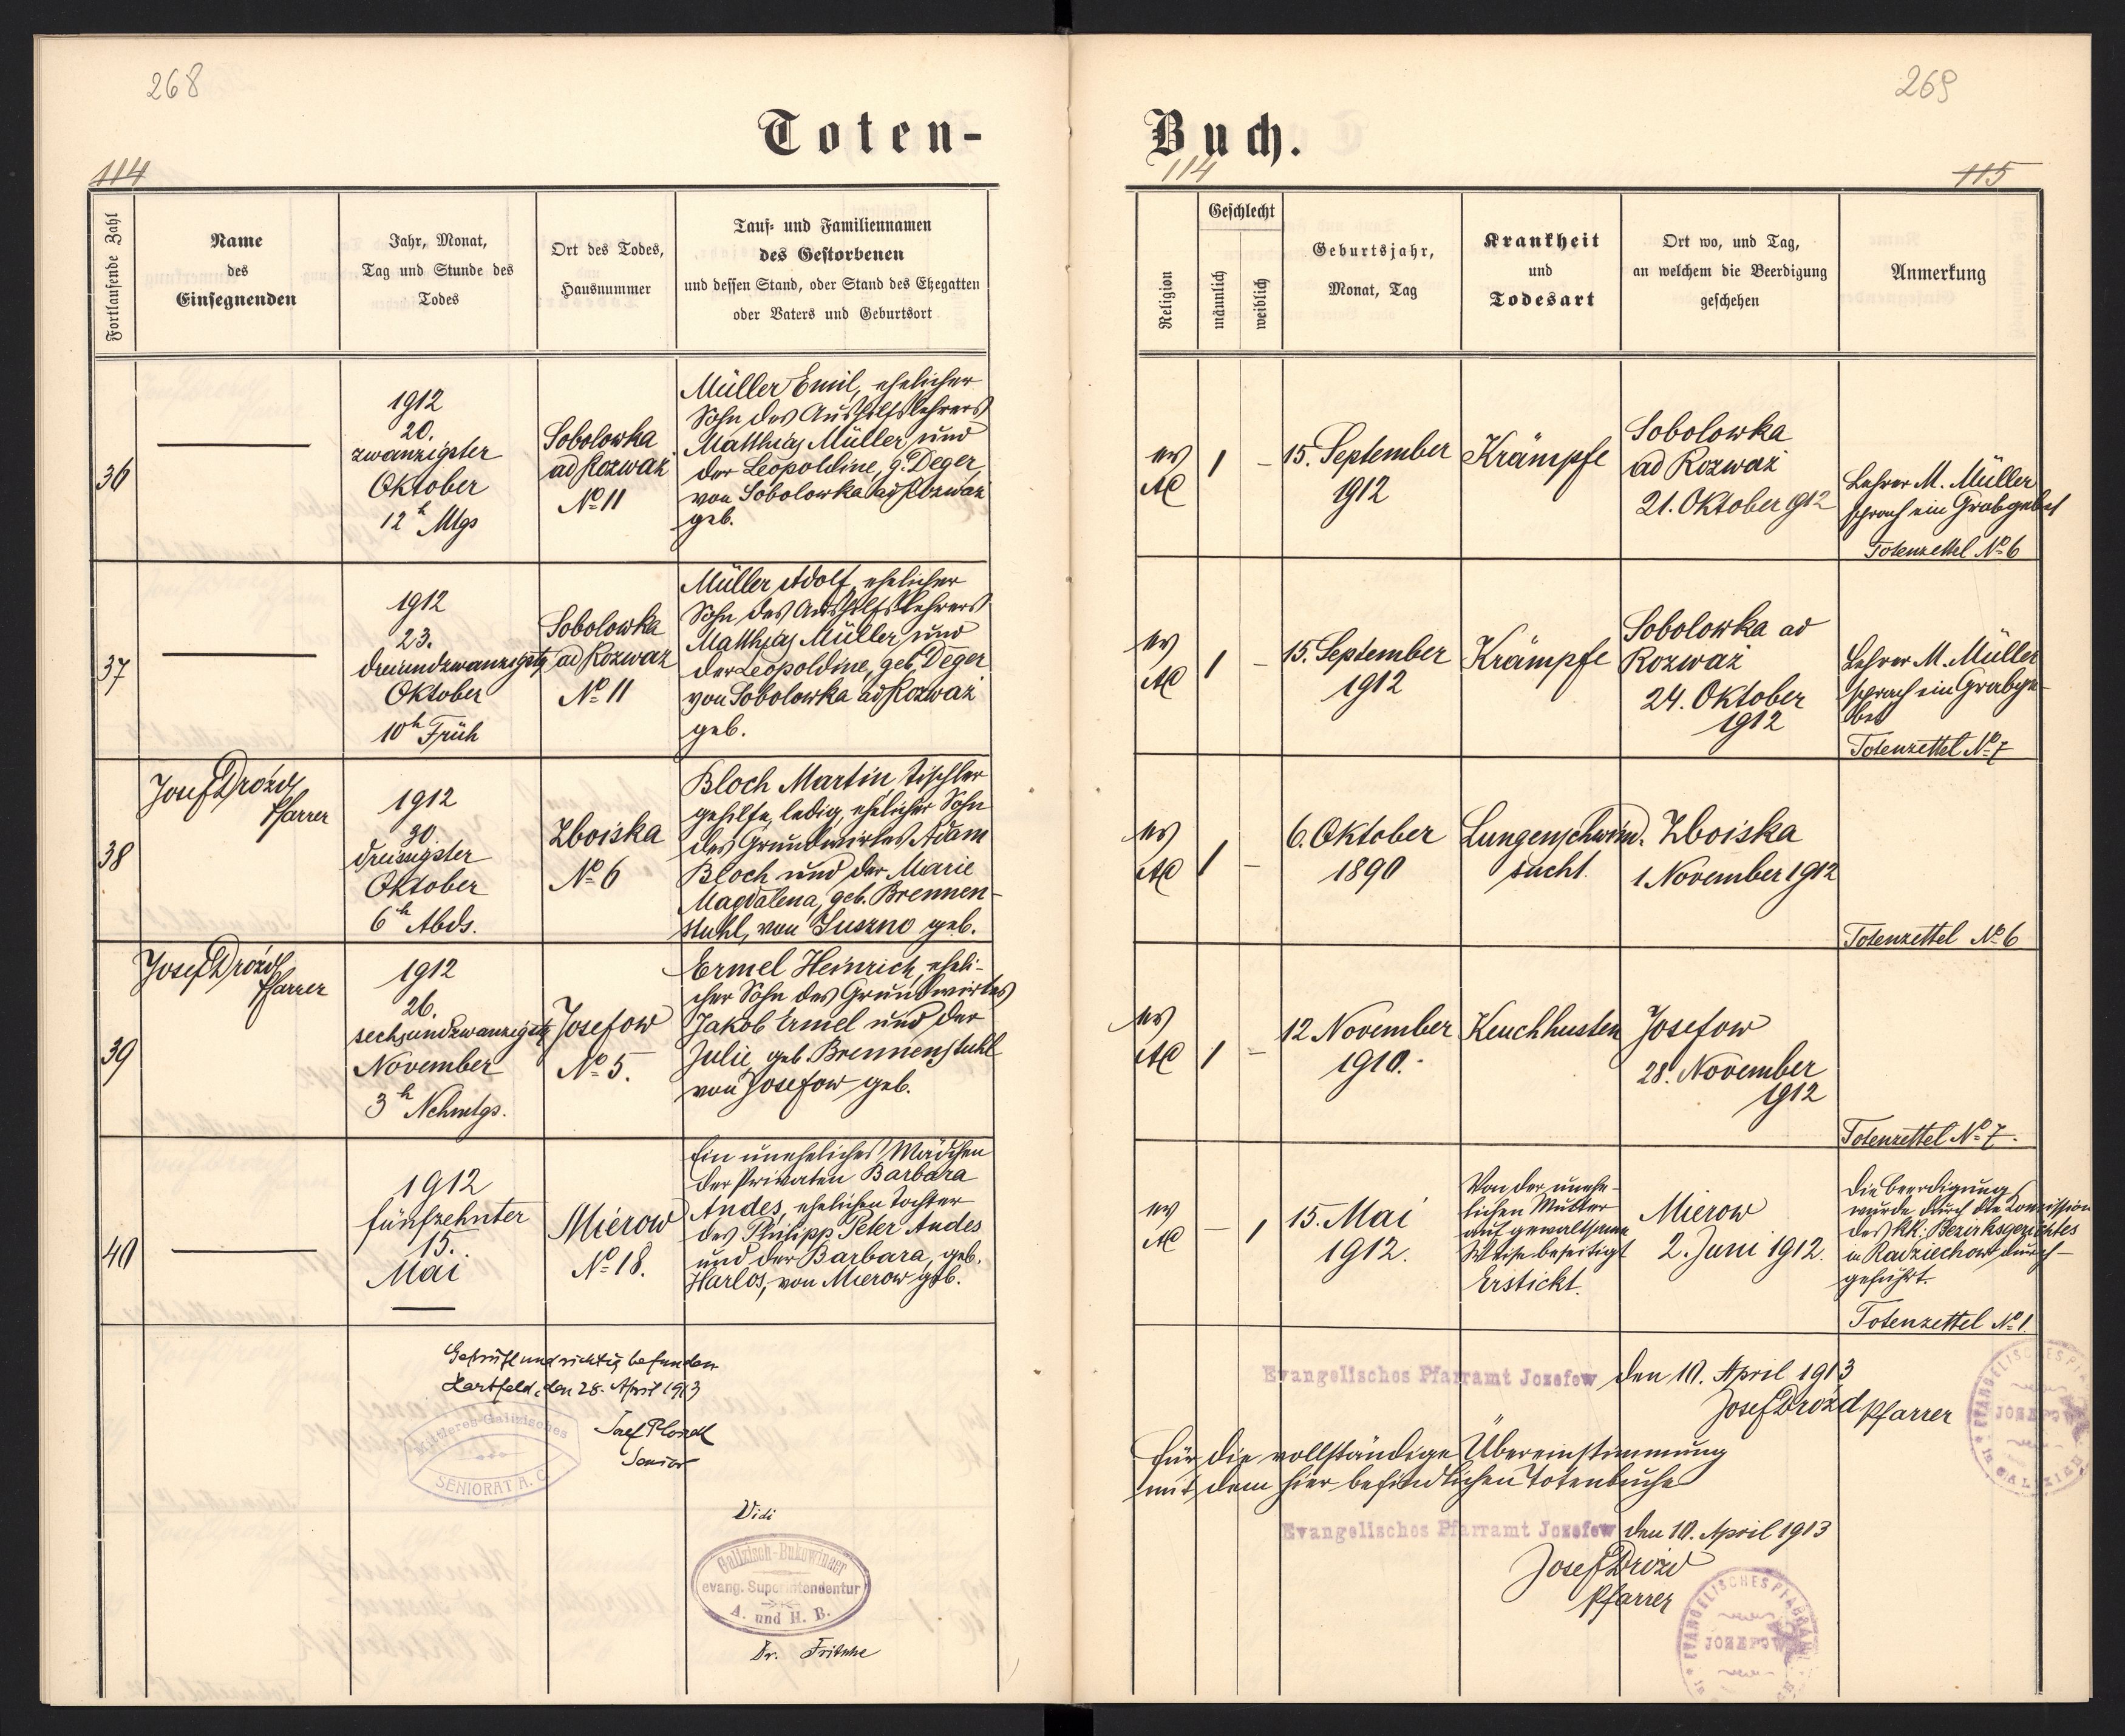 268
269
Toten-
Buch.
114
114
115
Fortlaufende Zahl
Name
des
Einsegnenden
Jahr, Monat,
Tag und Stunde des
Todes
Ort des Todes,
Hausnummer
Tauf- und Familiennamen
des Gestorbenen
und dessen Stand, oder Stand des Ehegatten
oder Vaters und Geburtsort
Religion
Geschlecht
männlich
weiblich
Geburtsjahr,
Monat, Tag
Krankheit
und
Todesart
Ort wo, und Tag,
an welchem die Beerdigung
geschehen
Anmerkung
36
1912
20.
zwanzigster
Oktober
12h Mtgs
Sobolowka
ad Rozważ
No 11
Müller Emil, ehelicher
Sohn des Aushilfslehrers
Matthias Müller und
der Leopoldine, g. Deger,
von Sobolowka ad Rozważ
geb.
ev
AC
1
–
15. September
1912
Krämpfe
Sobolowka
ad Rozważ
21. Oktober 1912
Lehrer M. Müller
sprach ein Grabgebet
Totenzettel No 6
37
1912
23.
dreiundzwanzigste
Oktober
10h Früh
Sobolowka
ad Rozważ
No 11
Müller Adolf, ehelicher
Sohn des Aushilfslehrers
Matthias Müller und
der Leopoldine, geb. Deger
von Sobolowka ad Rozważ
geb.
ev
AC
1
–
15. September
1912
Krämpfe
Sobolowka ad
Rozważ
24. Oktober
1912
Lehrer M. Müller
sprach ein Grabge-
bet
Totenzettel No 7
38
Josef Drozd
Pfarrer
1912
30.
dreissigster
Oktober
6h Abds.
Zboiska
No 6
Bloch Martin, Tischler
gehilfe, ledig, ehelicher Sohn
des Grundwirtes Adam
Bloch und der Marie
Magdalena, geb. Brennen-
stuhl, von Suszno geb.
ev
AC
1
–
6. Oktober
1890
Lungenschwind-
sucht.
Zboiska
1 November 1912
Totenzettel No 6
39
Josef Drozd
Pfarrer
1912
26.
sechsundzwanzigste
November
3h Nchmtgs.
Josefow
No 5.
Ermel Heinrich, eheli-
cher Sohn des Grundwirtes
Jakob Ermel und der
Julie, geb. Brennenstuhl
von Josefow geb.
ev
AC
1
–
12 November
1910.
Keuchhusten
Josefow
28. November
1912
Totenzettel No 7.
40
1912
fünfzehnter
15.
Mai
Mierow
No 18.
Ein uneheliches Mädchen
der Privaten Barbara
Andes, ehelichen Tochter
des Philipp Peter Andes
und der Barbara, geb.
Harlos, von Mierow geb.
ev
AC
–
1
15. Mai
1912.
Von der unehe-
lichen Mutter
auf gewaltsame
Weise beseitigt
Erstickt.
Mierow
2. Juni 1912.
Die Beerdigung
wurde durch die Kommission
des kk. Bezirksgerichtes
in Radziechow durch-
geführt.
Totenzettel No 1.
Geprüft und richtig befunden
Hartfeld, den 28. April 1913
Senior
Mittleres-Galizisches
SENIORAT A. C.
Vidi
Galizisch-Bukowinaer
evang. Superintendentur
A. und H. B.
Dr. Fritsche
Evangelisches Pfarramt Jozefow den 10. April 1913
Josef Drozd Pfarrer
EVANGELISCHES PFARRAMT
JOZEFOW
in GALIZIEN
Für die vollständige Übereinstimmung
mit dem hier befindlichen Totenbuche
Evangelisches Pfarramt Jozefow den 10. April 1913
Josef Drozd
Pfarrer
EVANGELISCHES PFARRAMT
JOZEFOW